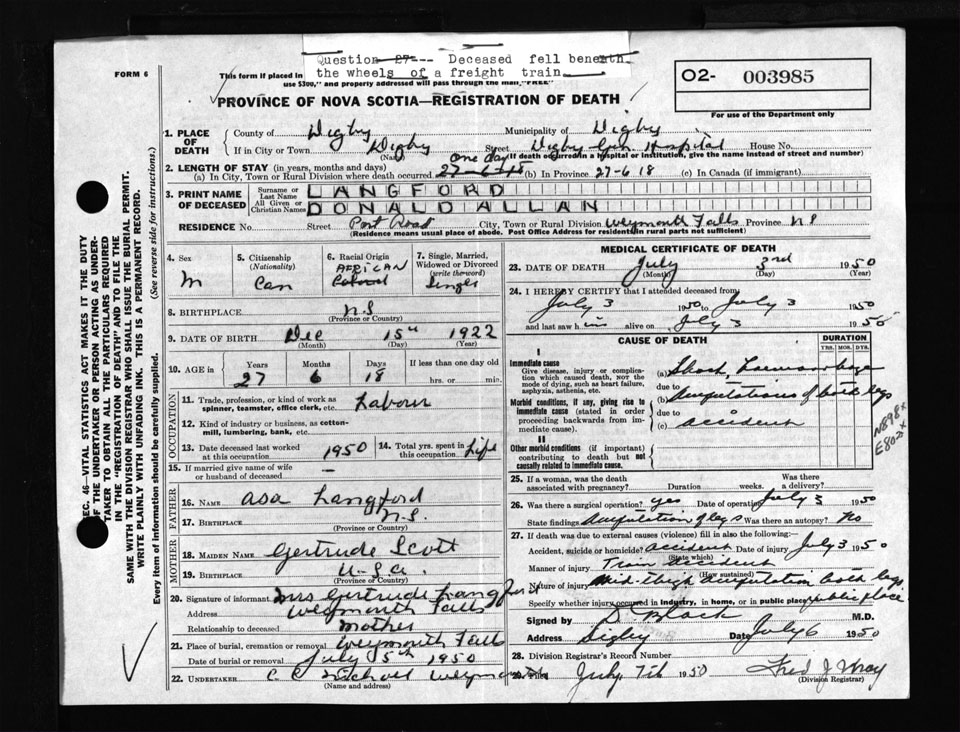 Question 27--- Deceased fell beneath
the wheels of a freight train
FORM 6
This form if placed in
use $300," and property addressed will pass through the mail, "FREE"
O2- 003985
For use of the Department only
PROVINCE OF NOVA SCOTIA—REGISTRATION OF DEATH
SEC. 46—VITAL STATISTICS ACT MAKES IT THE DUTY
OF THE UNDERTAKER OR PERSON ACTING AS UNDER-
TAKER TO OBTAIN ALL THE PARTICULARS REQUIRED
IN THE "REGISTRATION OF DEATH" AND TO FILE THE
SAME WITH THE DIVISION REGISTRAR WHO SHALL ISSUE THE BURIAL PERMIT.
WRITE PLAINLY WITH UNFADING INK. THIS IS A PERMANENT RECORD.
Every item of information should be carefully supplied. (See reverse side for instructions.)
1. PLACE OF DEATH
County of Digby Municipality of Digby
If in City or Town Digby Street Digby Gen. Hospital House No.
(Name) (If death occurred in a hospital or institution, give the name instead of street and number)
2. LENGTH OF STAY (in years, months and days) One day
(a) In City, Town or Rural Division where death occurred 27-6-18 (b) In Province 27-6 18 (c) In Canada (if immigrant)
3. PRINT NAME OF DECEASED
Surname or Last Name LANGFORD
All Given or Christian Names DONALD ALLAN
RESIDENCE No. Street Post Road City, Town or Rural Division Weymouth Falls Province N S
(Residence means usual place of abode. Post Office Address for residents in rural parts not sufficient)
4. Sex M
5. Citizenship (Nationality) Can
6. Racial Origin AFRICAN
7. Single, Married, Widowed or Divorced (write the word) Single
8. BIRTHPLACE N S
(Province or Country)
9. DATE OF BIRTH Dec 15th 1922
(Month) (Day) (Year)
10. AGE in Years 27 Months 6 Days 18 If less than one day old hrs. or min.
OCCUPATION
11. Trade, profession, or kind of work as spinner, teamster, office clerk, etc. Labour
12. Kind of industry or business, as cotton-mill, lumbering, bank, etc.
13. Date deceased last worked at this occupation 1950
14. Total yrs. spent in this occupation Life
15. If married give name of wife or husband of deceased —
FATHER
16. NAME Asa Langford
17. BIRTHPLACE N.S.
(Province or Country)
MOTHER
18. MAIDEN NAME Gertrude Scott
19. BIRTHPLACE U.S.A
(Province or Country)
20. Signature of informant Mrs Gertrude Langford
Address Weymouth Falls
Relationship to deceased Mother
21. Place of burial, cremation or removal Weymouth Falls
Date of burial or removal July 5th 1950
22. UNDERTAKER C C Weymouth
(Name and address)
MEDICAL CERTIFICATE OF DEATH
23. DATE OF DEATH July 3rd 1950
(Month) (Day) (Year)
24. I HEREBY CERTIFY that I attended deceased from
July 3 1950 to July 3 1950
and last saw him alive on July 3 1950
CAUSE OF DEATH
DURATION
YRS. MOS. DYS.
I
Immediate cause
Give disease, injury or complication which caused death, NOT the mode of dying, such as heart failure, asphyxia, asthenia, etc.
(a) Shock, haemorrhage
due to
Morbid conditions, if any, giving rise to immediate cause (stated in order proceeding backwards from immediate cause).
(b) Amputations of both legs
due to
(c) accident
II
Other morbid conditions (if important) contributing to death but not causally related to immediate cause.
N898x
E802x
25. If a woman, was the death associated with pregnancy? Duration weeks. Was there a delivery?
26. Was there a surgical operation? yes Date of operation July 3 1950
State findings Amputation of legs Was there an autopsy? No
27. If death was due to external causes (violence) fill in also the following:—
Accident, suicide or homicide? accident Date of injury July 3 1950
(State which)
Manner of injury Train accident
(How sustained)
Nature of injury Mid-thigh amputation both legs
Specify whether injury occurred in industry, in home, or in public place public place
Signed by D Black M.D.
Address Digby Date July 6 1950
28. Division Registrar's Record Number
29. Filed July 7th 1950 Fred J Wray
(Division Registrar)